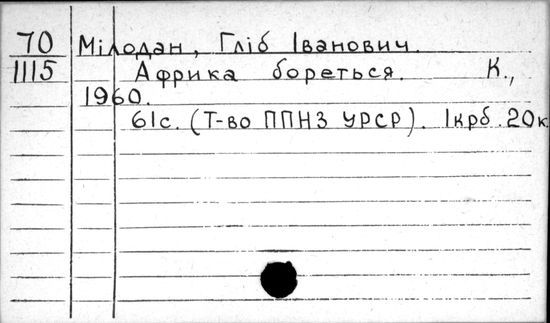 70 Мілодан, Гліб Іванович.
1115 Африка бореться. К.,
1960.
61с. (Т-во ППНЗ УРСР). 1крб. 20к